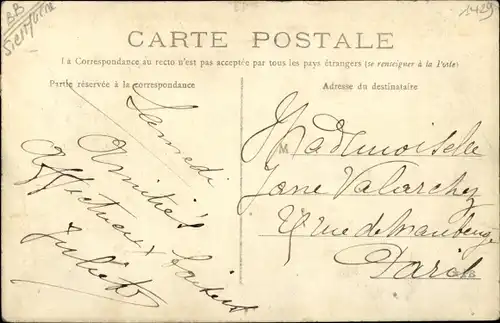 1429
CARTE POSTALE
La Correspondance au recto n'est pas acceptée par tous les pays étrangers (se renseigner à la Poste)
Partie réservée à la correspondance
Samedi
Amitiés
Affectueux baisers
Juliette
Adresse du destinataire
Mademoiselle
Jane
rue de Maubeuge
Paris